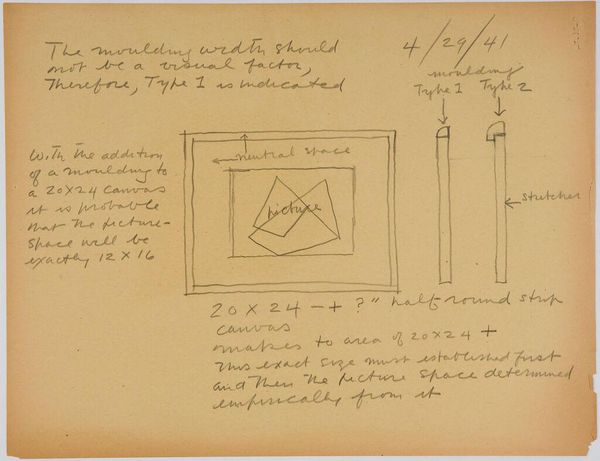 4/29/41
The moulding width should
not be a visual factor,
Therefore, Type 1 is indicated
moulding
Type 1 Type 2
With the addition
of a moulding to
a 20x24 canvas
it is probable
that the picture-
space will be
exactly 12 x 16
neutral space
picture
stretcher
20 x 24 — + ?" half-round strip
canvas
makes to area of 20x24 +
This exact size must established first
and then the picture space determined
empirically from it